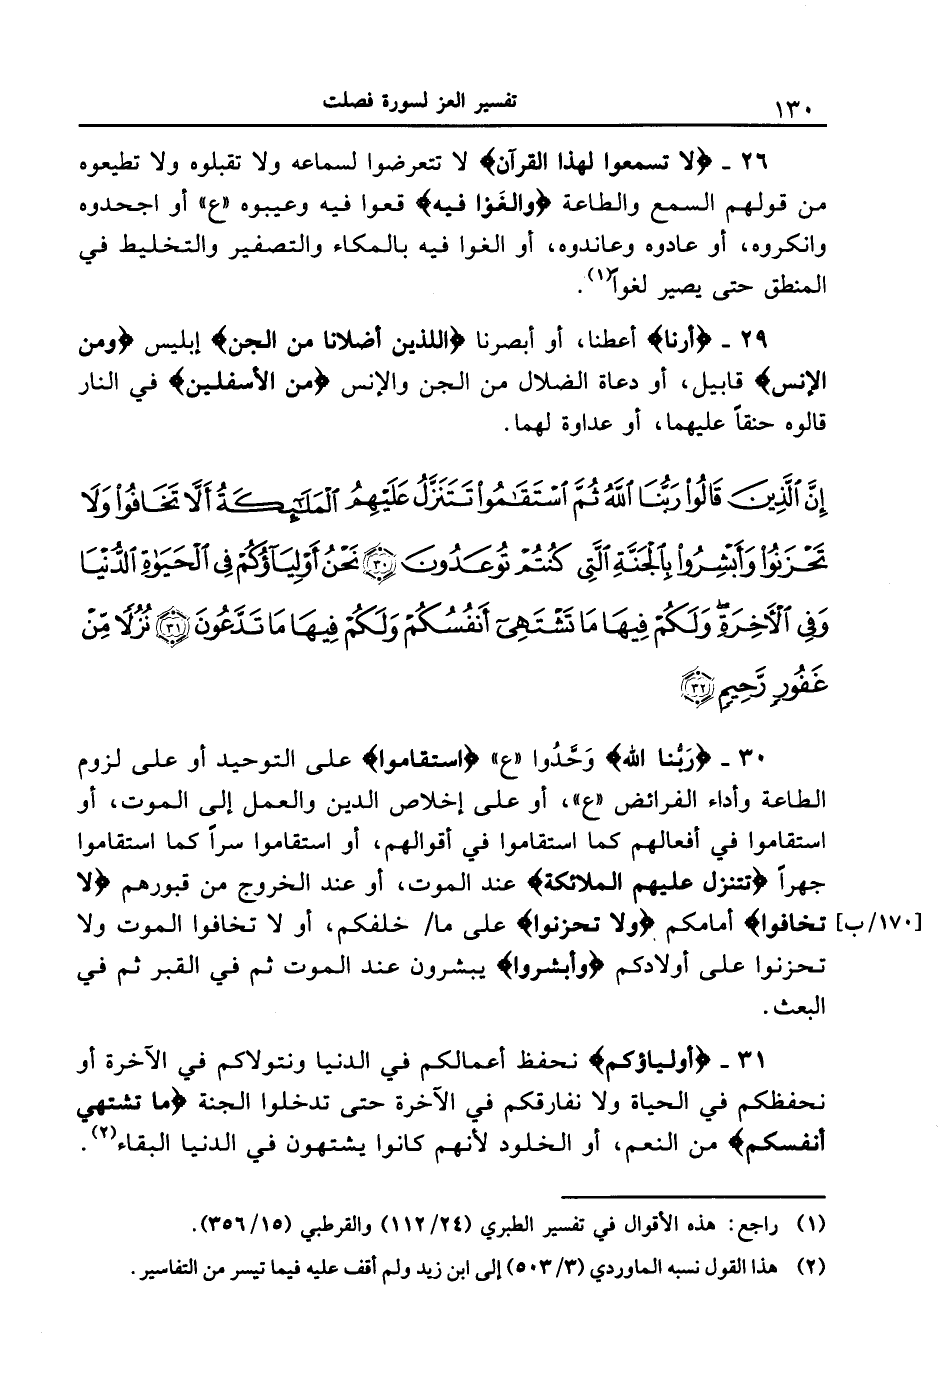 ١٣٠ تفسير العز لسورة فصلت
٢٦ ـ ﴿لا تسمعوا لهذا القرآن﴾ لا تتعرضوا لسماعه ولا تقبلوه ولا تطيعوه
من قولهم السمع والطاعة ﴿والغَوْا فيه﴾ قعوا فيه وعيبوه «ع» أو اجحدوه
وانكروه، أو عادوه وعاندوه، أو الغوا فيه بالمكاء والتصفير والتخليط في
المنطق حتى يصير لغواً(١).
٢٩ ـ ﴿أرنا﴾ أعطنا، أو أبصرنا ﴿اللذين أضلانا من الجن﴾ إبليس ﴿ومن
الإنس﴾ قابيل، أو دعاة الضلال من الجن والإنس ﴿من الأسفلين﴾ في النار
قالوه حنقاً عليهما، أو عداوة لهما.
إِنَّ ٱلَّذِينَ قَالُوا۟ رَبُّنَا ٱللَّهُ ثُمَّ ٱسْتَقَـٰمُوا۟ تَتَنَزَّلُ عَلَيْهِمُ ٱلْمَلَـٰٓئِكَةُ أَلَّا تَخَافُوا۟ وَلَا
تَحْزَنُوا۟ وَأَبْشِرُوا۟ بِٱلْجَنَّةِ ٱلَّتِى كُنتُمْ تُوعَدُونَ ﴿٣٠﴾ نَحْنُ أَوْلِيَآؤُكُمْ فِى ٱلْحَيَوٰةِ ٱلدُّنْيَا
وَفِى ٱلْـَٔاخِرَةِ ۖ وَلَكُمْ فِيهَا مَا تَشْتَهِىٓ أَنفُسُكُمْ وَلَكُمْ فِيهَا مَا تَدَّعُونَ ﴿٣١﴾ نُزُلًا مِّنْ
غَفُورٍ رَّحِيمٍ ﴿٣٢﴾
٣٠ ـ ﴿رَبُّنا الله﴾ وَحَّدُوا «ع» ﴿استقاموا﴾ على التوحيد أو على لزوم
الطاعة وأداء الفرائض «ع»، أو على إخلاص الدين والعمل إلى الموت، أو
استقاموا في أفعالهم كما استقاموا في أقوالهم، أو استقاموا سراً كما استقاموا
جهراً ﴿تتنزل عليهم الملائكة﴾ عند الموت، أو عند الخروج من قبورهم ﴿لا
تخافوا﴾ أمامكم ﴿ولا تحزنوا﴾ على ما/ خلفكم، أو لا تخافوا الموت ولا [١٧٠/ب]
تحزنوا على أولادكم ﴿وأبشروا﴾ يبشرون عند الموت ثم في القبر ثم في
البعث.
٣١ ـ ﴿أولياؤكم﴾ نحفظ أعمالكم في الدنيا ونتولاكم في الآخرة أو
نحفظكم في الحياة ولا نفارقكم في الآخرة حتى تدخلوا الجنة ﴿ما تشتهي
أنفسكم﴾ من النعم، أو الخلود لأنهم كانوا يشتهون في الدنيا البقاء(٢).
(١) راجع: هذه الأقوال في تفسير الطبري (١١٢/٢٤) والقرطبي (٣٥٦/١٥).
(٢) هذا القول نسبه الماوردي (٥٠٣/٣) إلى ابن زيد ولم أقف عليه فيما تيسر من التفاسير.